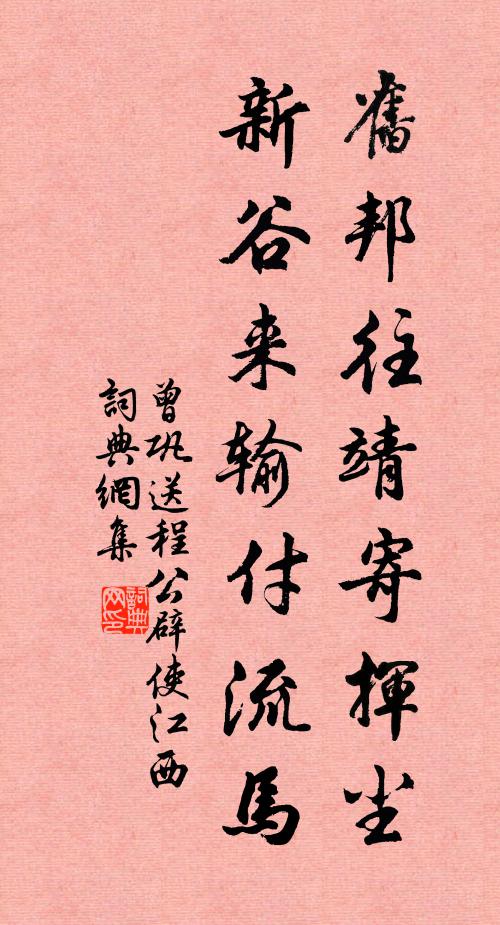 舊邦往靖寄揮尘
新谷来输付流馬
曾巩送程公辟使江西
詞典網集
詞典网印